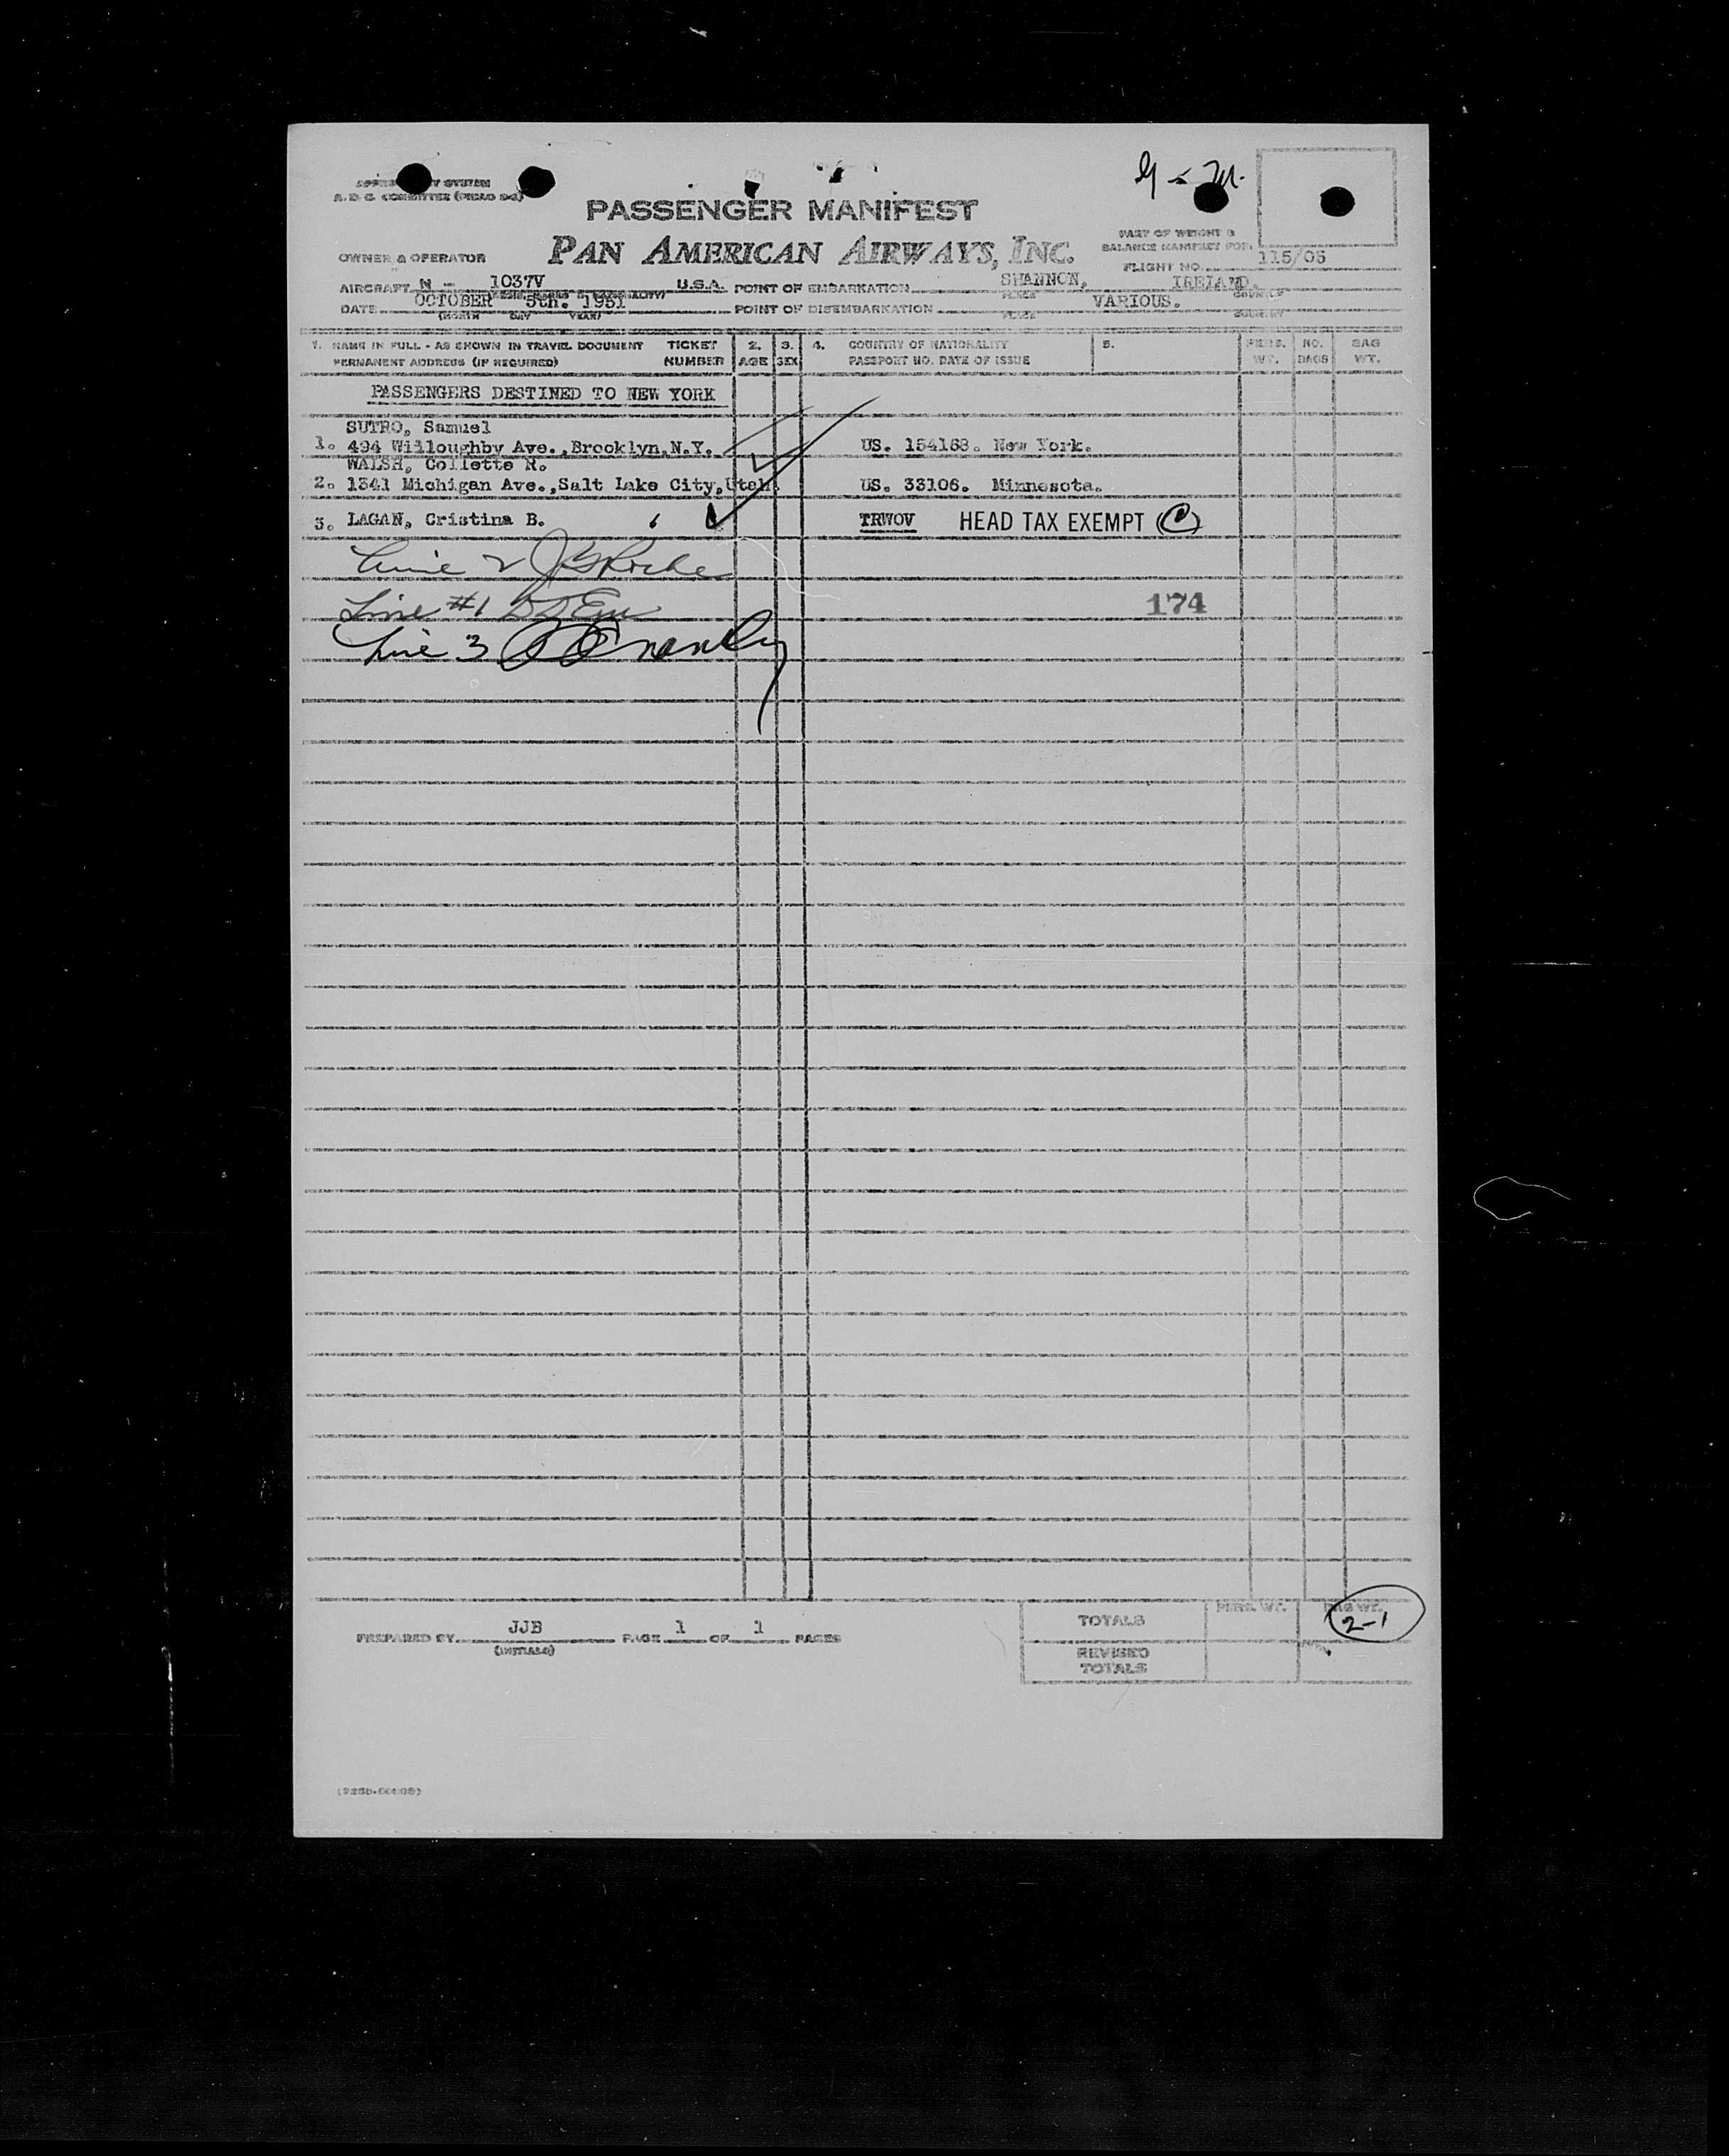 A. D. C. COMMITTEE
PASSENGER MANIFEST
PART OF WEIGHT &
BALANCE MANIFEST FOR
OWNER & OPERATOR PAN AMERICAN AIRWAYS, INC.
FLIGHT NO. 115/05
AIRCRAFT N - 1037V U.S.A. POINT OF EMBARKATION SHANNON, IRELAND.
PLACE COUNTRY
DATE OCTOBER 5th. 1951 POINT OF DISEMBARKATION VARIOUS.
(MONTH DAY YEAR) PLACE COUNTRY
1. NAME IN FULL - AS SHOWN IN TRAVEL DOCUMENT TICKET 2. 3. 4. COUNTRY OF NATIONALITY 5. PERS. NO. BAG
PERMANENT ADDRESS (IF REQUIRED) NUMBER AGE SEX PASSPORT NO. DATE OF ISSUE WT. BAGS WT.
PASSENGERS DESTINED TO NEW YORK
SUTRO, Samuel
1. 494 Willoughby Ave.,Brooklyn,N.Y. US. 154168. New York.
WALSH, Collette R.
2. 1341 Michigan Ave.,Salt Lake City,Utah US. 33106. Minnesota.
3. LAGAN, Cristina B. TRWOV HEAD TAX EXEMPT
Line 2
Line #1
174
Line 3
PREPARED BY JJB PAGE 1 OF 1 PAGES
(INITIALS)
TOTALS PERS. WT. BAG WT.
2-1
REVISED
TOTALS